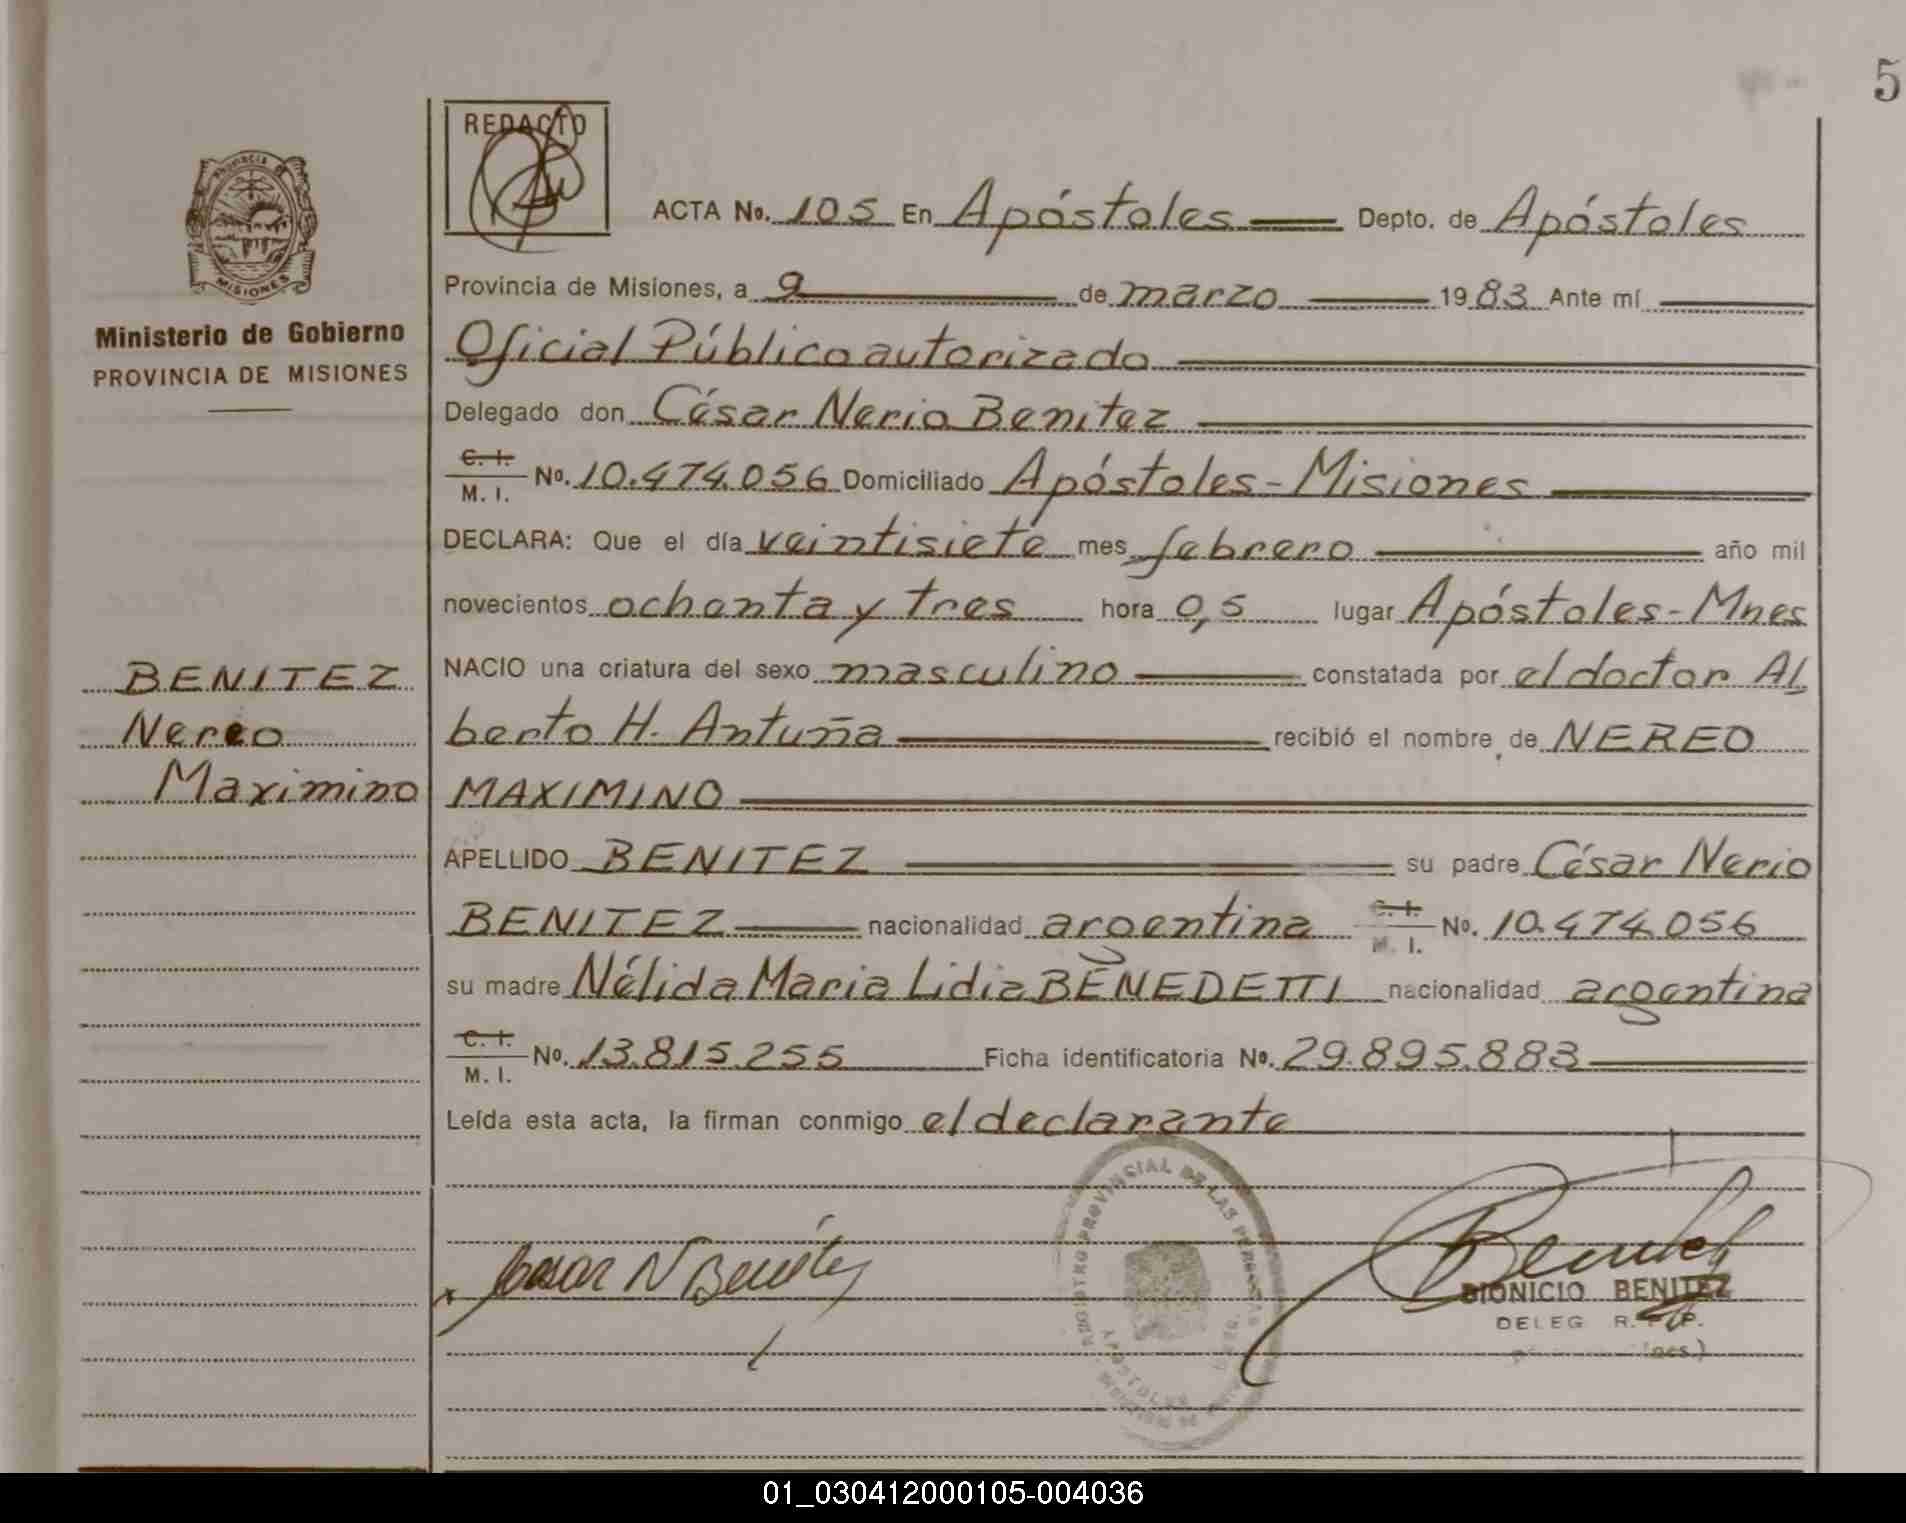 5
REDACTO
PROVINCIA DE
MISIONES
Ministerio de Gobierno
PROVINCIA DE MISIONES
ACTA No. 105 En Apóstoles Depto. de Apóstoles
Provincia de Misiones, a 9 de marzo 1983 Ante mí
Oficial Público autorizado
Delegado don César Nerio Benitez
C. I. M. I. No. 10.474.056 Domiciliado Apóstoles - Misiones
DECLARA: Que el día veintisiete mes febrero año mil
novecientos ochenta y tres hora 0,5 lugar Apóstoles - Mnes
NACIO una criatura del sexo masculino constatada por el doctor Al
berto H. Antuña recibió el nombre de NEREO
MAXIMINO
BENITEZ
Nereo
Maximino
APELLIDO BENITEZ su padre César Nerio
BENITEZ nacionalidad argentina C. I. M. I. No. 10.474.056
su madre Nélida Maria Lidia BENEDETTI nacionalidad argentina
C. I. M. I. No. 13.815.255 Ficha identificatoria No. 29.895.883
Leída esta acta, la firman conmigo el declarante
Cesar N Benitez
REGISTRO PROVINCIAL DE LAS PERSONAS
APOSTOLES
Benitez
DIONICIO BENITEZ
DELEG R. P. P.
01_030412000105-004036